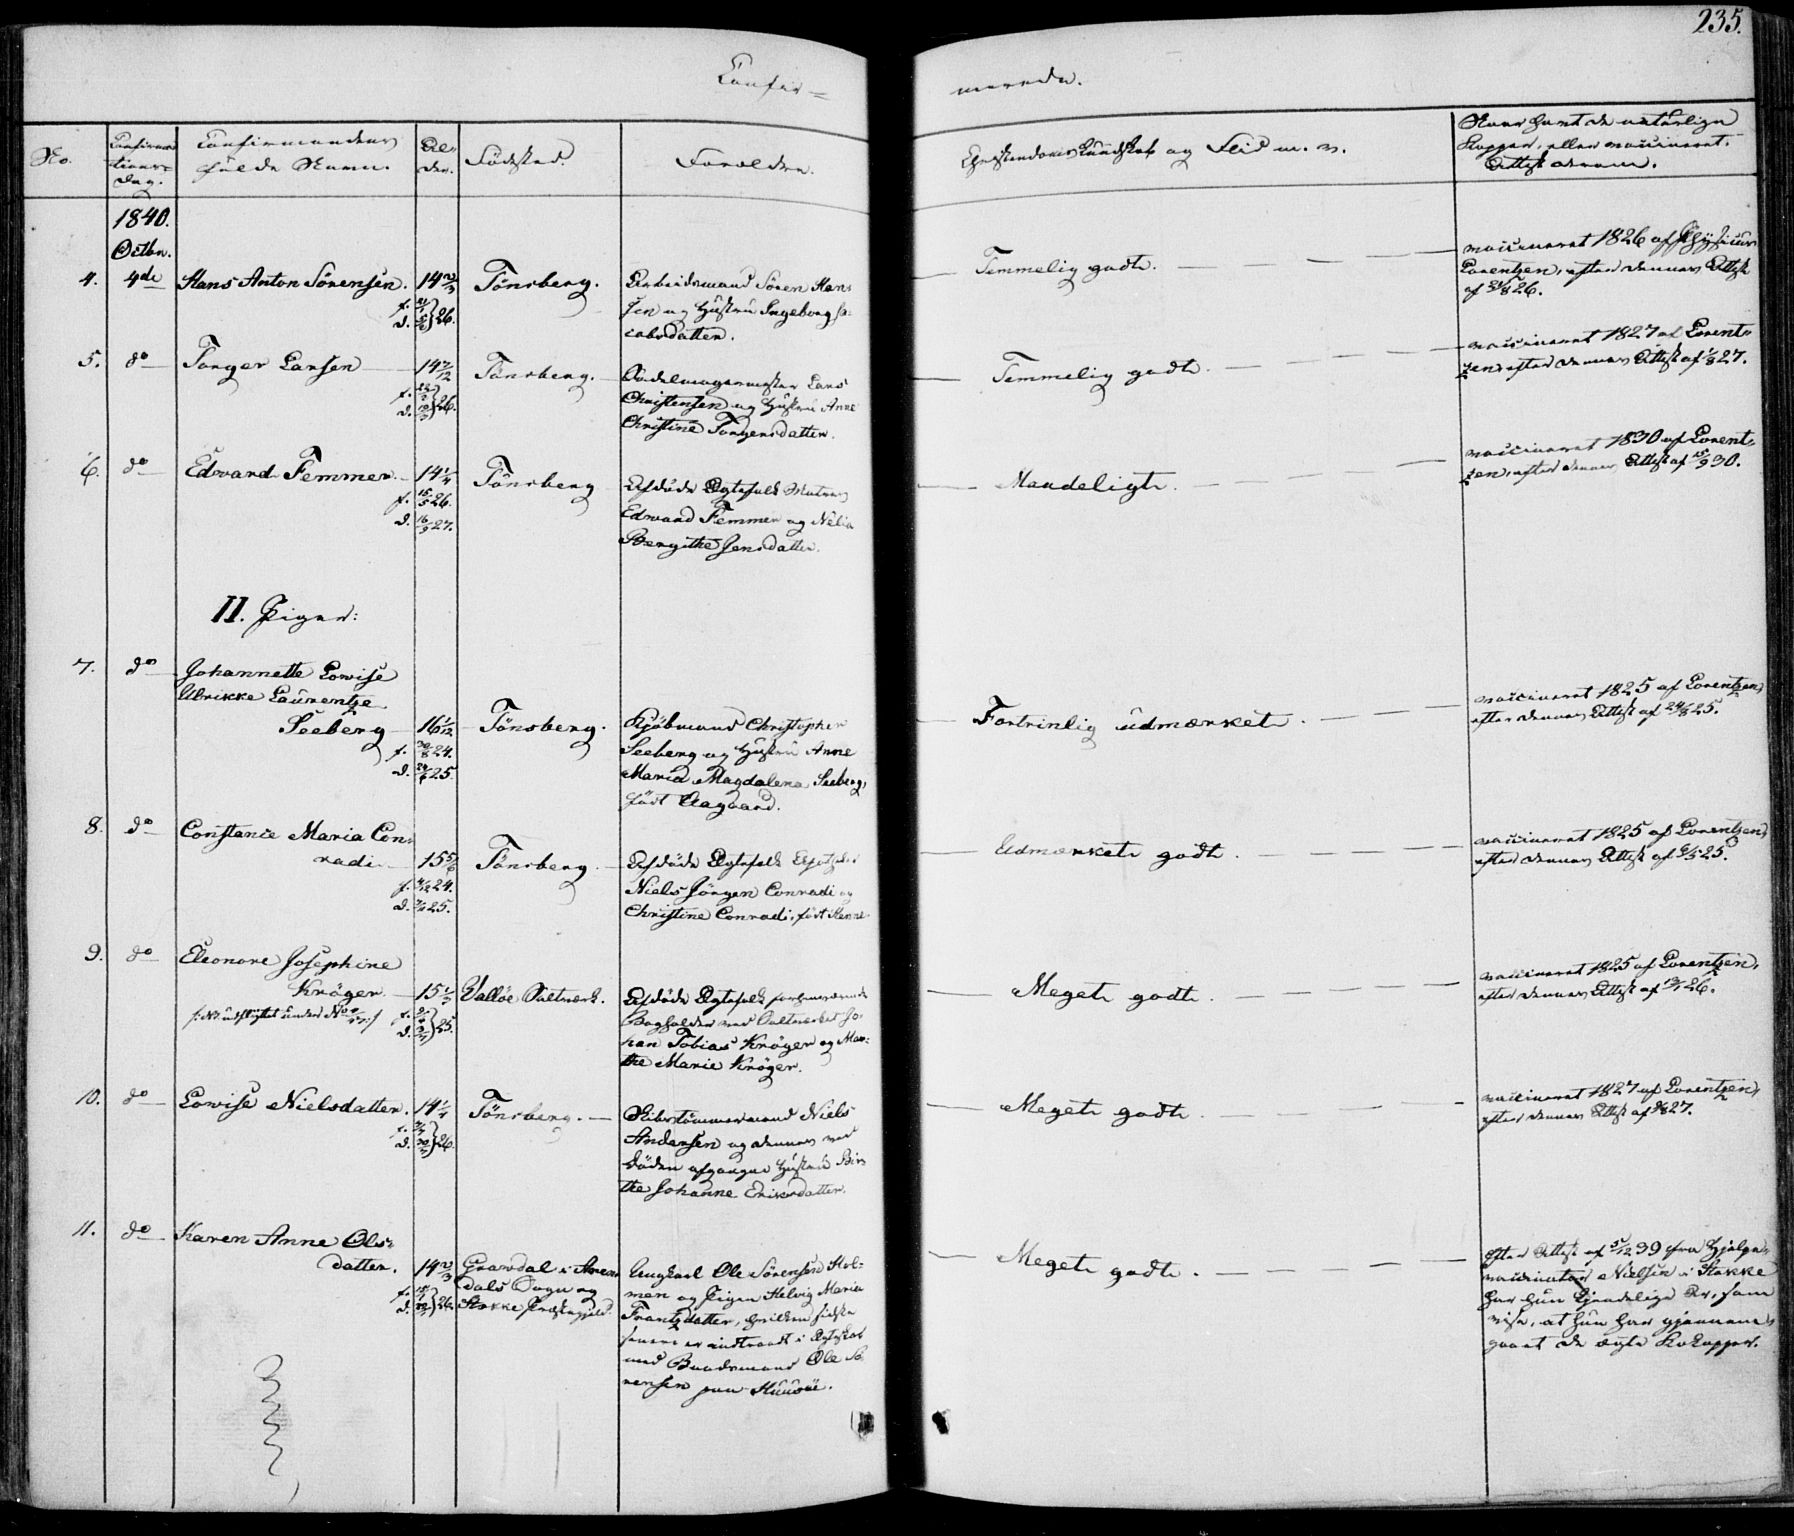 235.
Confir=
merede.
No.
Confirma
tions=
dag.
Confirmandens
fulde Navn.
Al=
der.
Födested.
Forældre.
Christendoms Kundskab og Flid m. v.
Naar havt de naturlige
Kopper, eller vaccineret.
Attest derom.
1840.
Octbr.
4. 4de Hans Anton Sörensen. 14 2/3 Tönsberg.
26.
Arbeidsmand Sören Han-
sen og Hustru Ingeborg Ja-
cobsdatter.
Temmelig godt.
vaccineret 1826 af Physicus
Lorentzen, efter dennes Attest
af 26.
5. do Torger Larsen 14 7/12 Tönsberg.
26.
Lars
Christensen og Hustru Anne
Christine Torgersdatter.
Temmelig godt.
vaccineret 1827 af Lorent-
zen, efter dennes Attest af 27.
6. do Edvard Femmer. 14 Tönsberg
f. 26.
d. 16/9 27.
Afdöde Ægtefolk
Edvard Femmer og
Bergithe Jensdatter.
Maadeligt.
vaccineret 1830 af Lorent-
zen, efter dennes Attest af 15/9 30.
II. Piger:
7. do Johannette Lovise
Ulrikke Laurentze
Seeberg 16 1/12 Tönsberg.
f. 30/8 24.
d. 25.
Kjöbmand Christopher
Seeberg og Hustru Anne
Maria Magdalena Seeberg,
födt Aagaard.
Fortrinlig udmærket
vaccineret 1825 af Lorentzen,
efter dennes Attest af 24/8 25.
8. do Constance Maria Con-
radi 15 5/6 Tönsberg
f. 24.
d. 25.
Afdöde Ægtefolk
Niels Jörgen Conradi og
Christine Conradi, födt
Udmærket godt.
vaccineret 1825 af Lorentzen,
efter dennes Attest af 25.
9. do Eleonore Josephine
Kröger. 15 Valløe Saltværk.
25.
Afdöde Ægtefolk forhenværende
Bogholder ved Saltværket Jo-
han Tobias Kröger og Mar-
the Marie Kröger.
Meget godt.
vaccineret 1825 af Lorentzen,
efter dennes Attest af 26.
10. do Lovise Nielsdatter. 14 Tönsberg.
26.
Skibstömmermand Niels
Andersen og dennes ved
Döden afgangne Hustru Bir-
the Johanne Eriksdatter.
Meget godt
vaccineret 1827 af Lorentzen,
efter dennes Attest af 27.
11. do Karen Anne Ols-
datter. 14 2/3
26.
i
dals Sogn og
Stokke Præstegjeld.
Ungkarl Ole Sörensen Hol-
men og Pigen Helvig Maria
Frantzdatter, hvilken sidste
senere er indtraadt i Ægteskab
med Baadsmand Ole Sö-
rensen paa Huusöe.
Meget godt.
Efter Attest af 5/12 39 fra Hjelpe-
vaccinatör Nielsen i Stokke
har hun kjendelige Ar, som
vise, at hun har gjennem-
gaaet de ægte Kokopper.